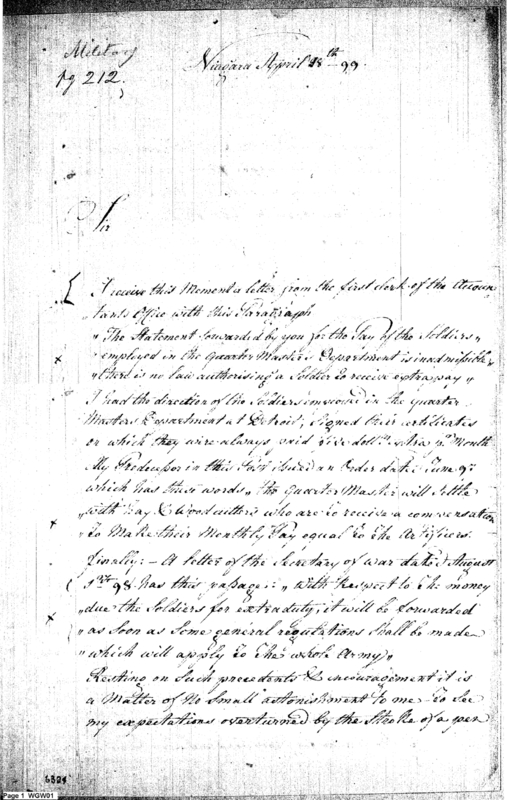 Military
pg 212.
Niagara April 18th 99.
Sir
I receive this Moment a letter from the first clerk of the Accoun
tants Office with this Paragraph
" The Statement forwarded by you for the Pay of the Soldiers "
" employed in the Quarter Master's Department is inadmissible "
" there is no law authorising a Soldier to receive extra pay "
I had the direction of the Soldiers in the Quarter
Masters Department at Detroit, signed their certificates
on which they were always paid five doll.s extra pr Month
My Predecessor in this Post issued an Order dated June 9th
which has these words " the Quarter Master will settle
" with Hay & Woodcutters who are to receive a compensation
" To Make their Monthly Pay equal To The Artificers.
finally:- A letter of the Secretary of War dated August
98 has this passage: " With Respect to The money
" due the Soldiers for extra duty, it will be forwarded
" as soon as Some general regulations Shall be made
" which will apply To The whole Army "
Resting on Such precedents & encouragement it is
a Matter of No Small astonishment to me To See
my expectations overturned by the Stroke of a pen
6824
Page 1 WGW01